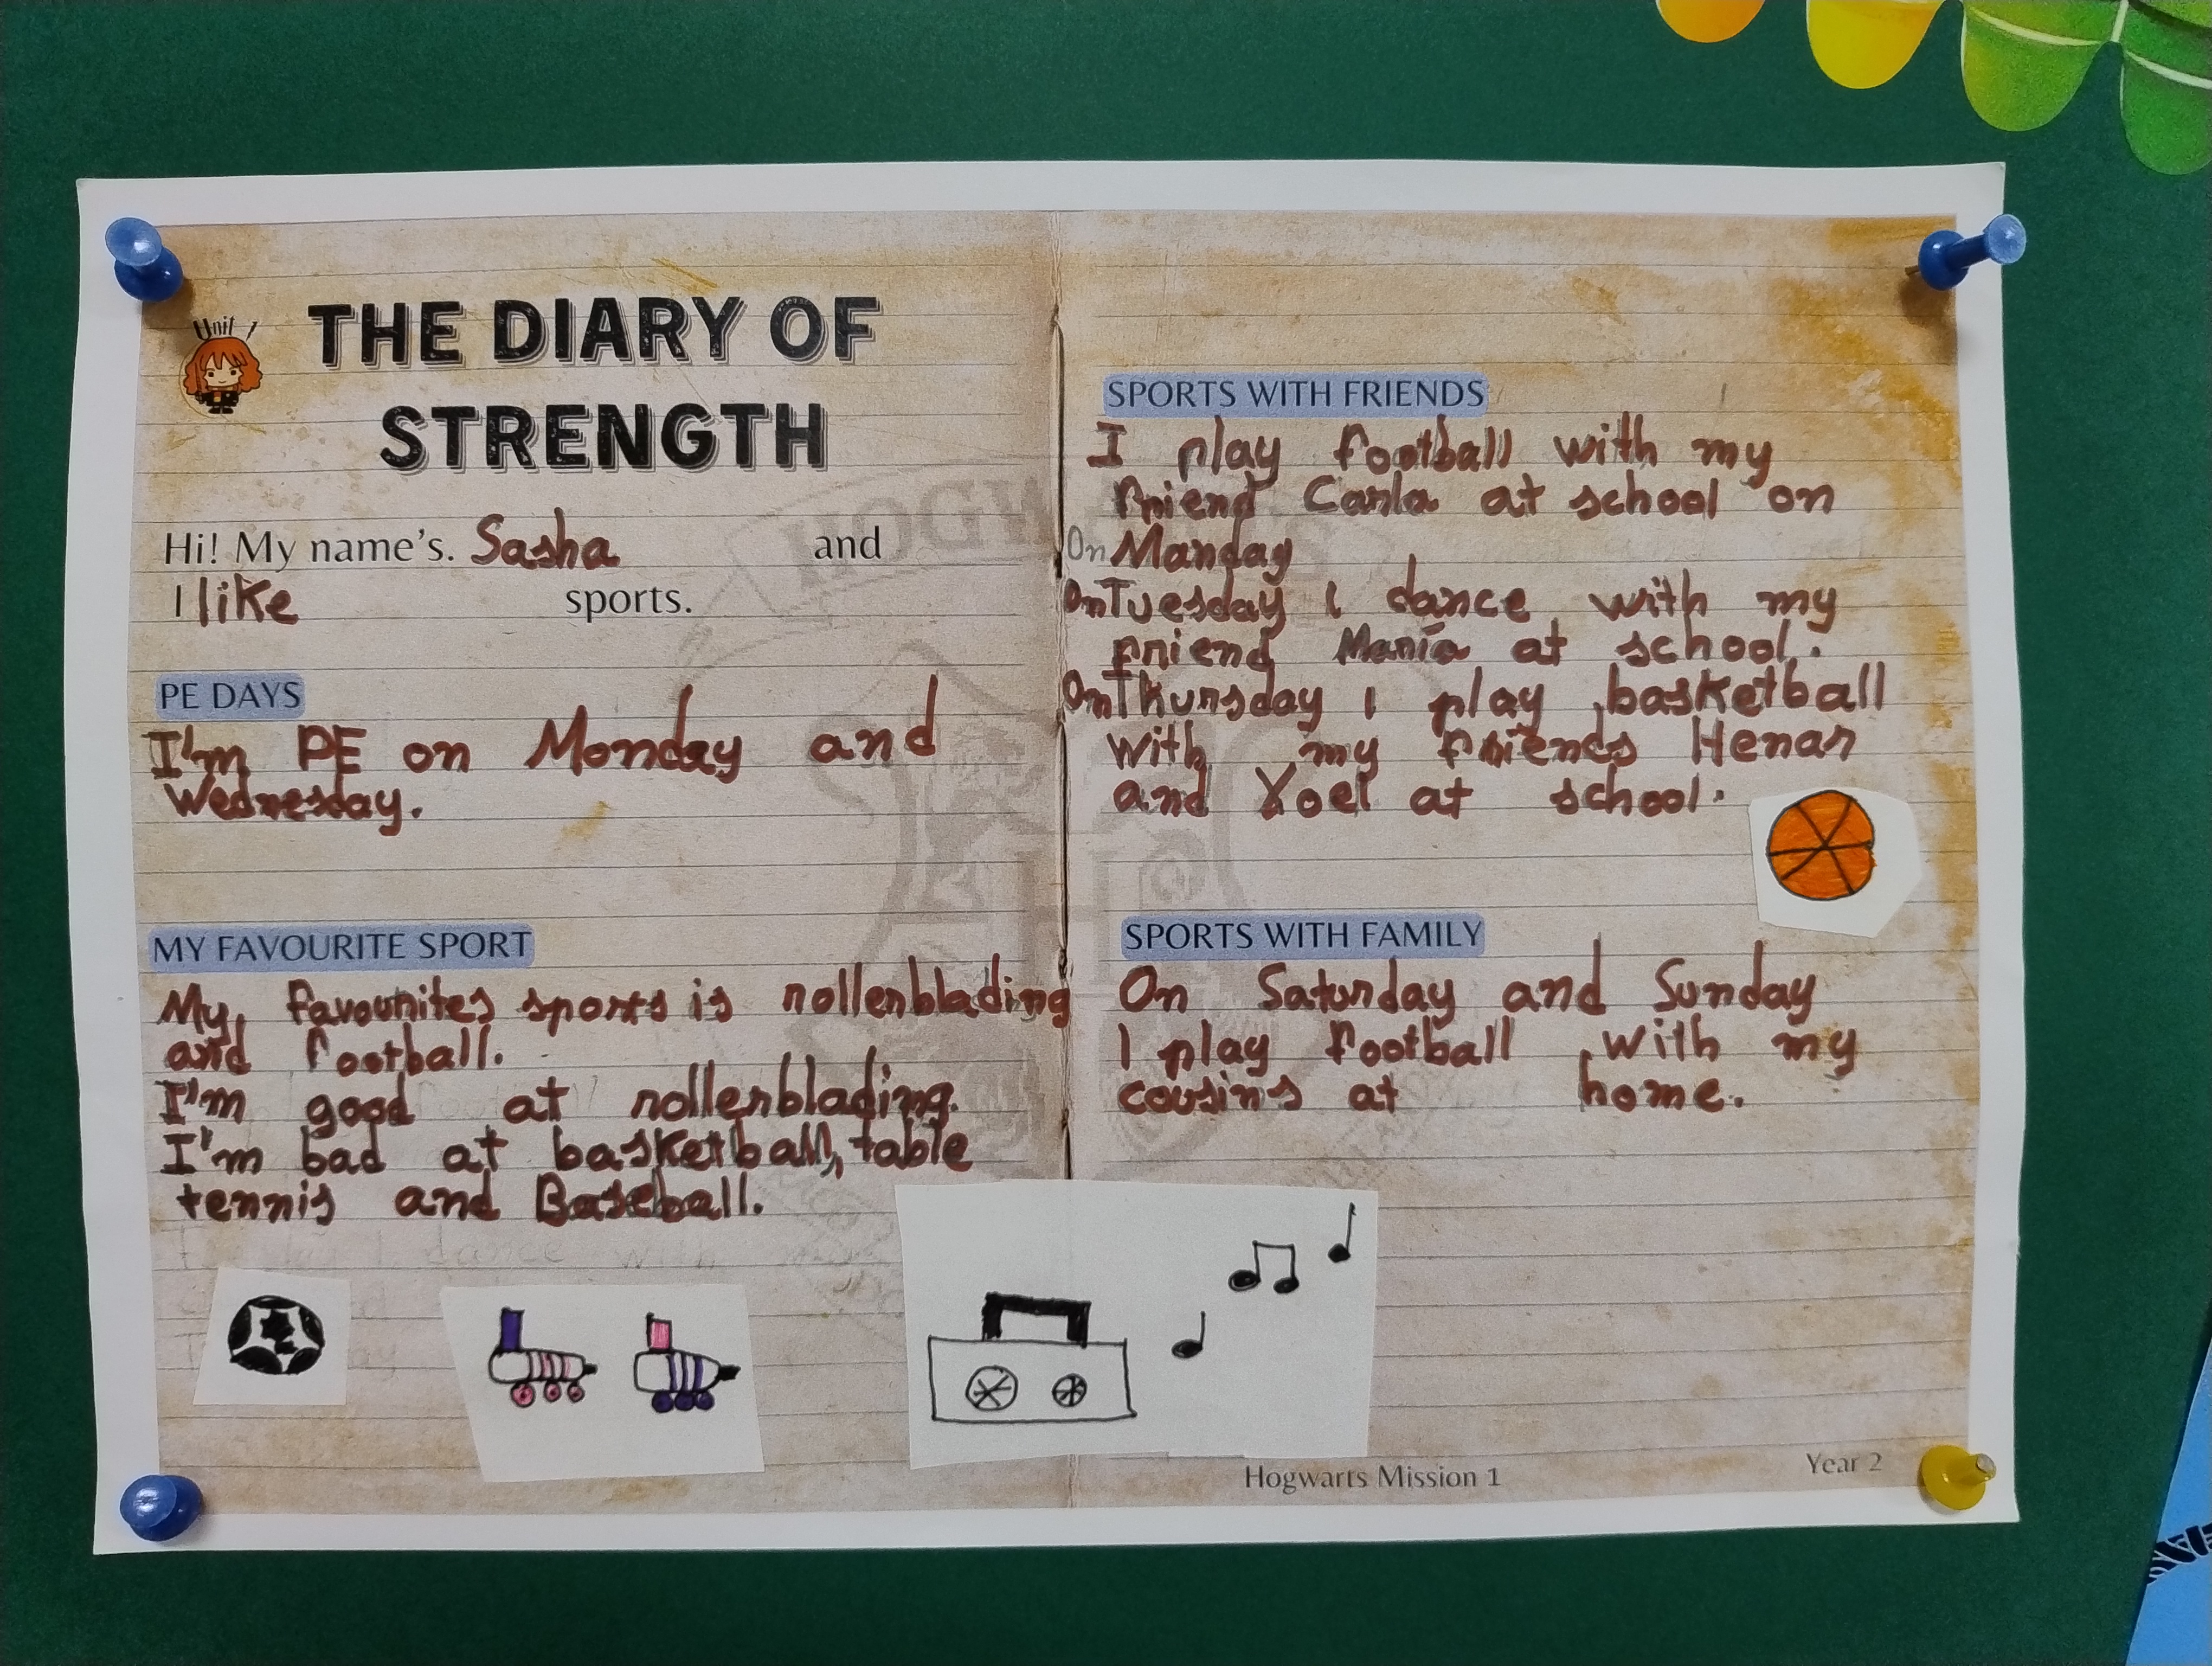 Unit 1
THE DIARY OF
STRENGTH
Hi! My name's. Sasha and
I like sports.
PE DAYS
I'm PE on Monday and
Wednesday.
MY FAVOURITE SPORT
My favourites sports is rollerblading
and football.
I'm good at rollerblading.
I'm bad at basketball, table
tennis and Baseball.
dance with
SPORTS WITH FRIENDS
I play football with my
friend Carla at school on
On Manday
On Tuesday I dance with my
friend María at school.
On Thursday I play basketball
with my friends Henar
and Yoel at school.
SPORTS WITH FAMILY
On Saturday and Sunday
I play football with my
cousins at home.
Hogwarts Mission 1
Year 2